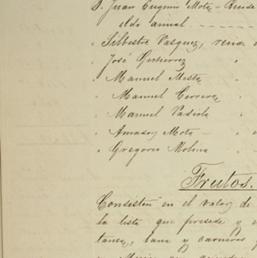 D. Juan Eugenio Mota - Reside
eldo anual
" Silbestre Vasquez, vecino
" José Gutierrez "
" Manuel Mella "
" Manuel Cerrera "
" Manuel Vadiola "
" Amador Mota - "
" Gregorio Molina "
Frutos.
Consisten en el valor de
la lista que precede y
tanza, lana y carneros